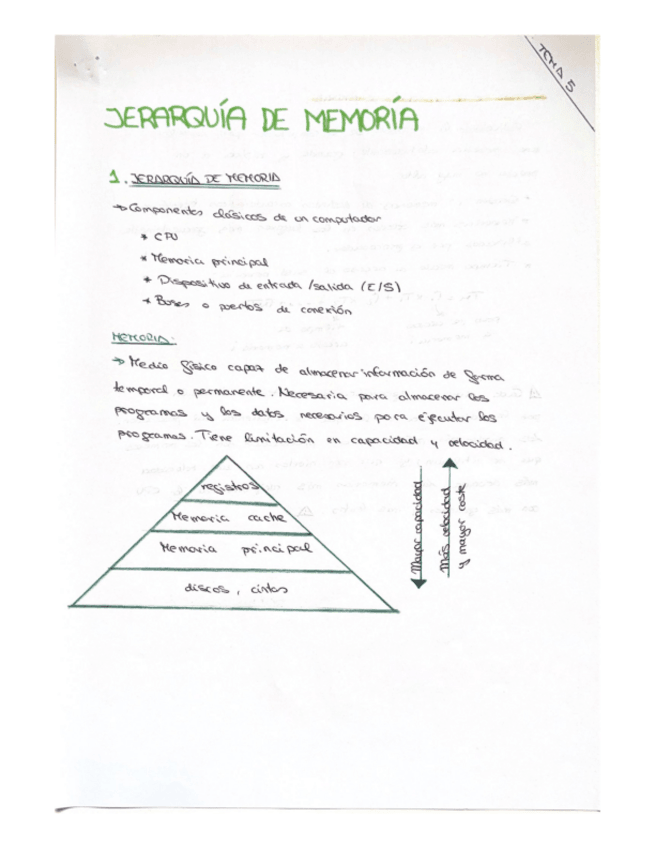 TEMA 5
JERARQUÍA DE MEMORÍA
1. JERARQUÍA DE MEMORIA
→ Componentes clásicos de un computador
* CPU
* Memoria principal
* Dispositivo de entrada /salida (E/S)
* Buses o puertos de conexión
MEMORIA:
→ Medio físico capaz de almacenar información de forma
temporal o permanente. Necesaria para almacenar los
programas y los datos necesarios para ejecutar los
programas. Tiene limitación en capacidad y velocidad.
registros
Memoria cache
Memoria principal
discos, cintas
Mayor capacidad
Más velocidad
y mayor coste